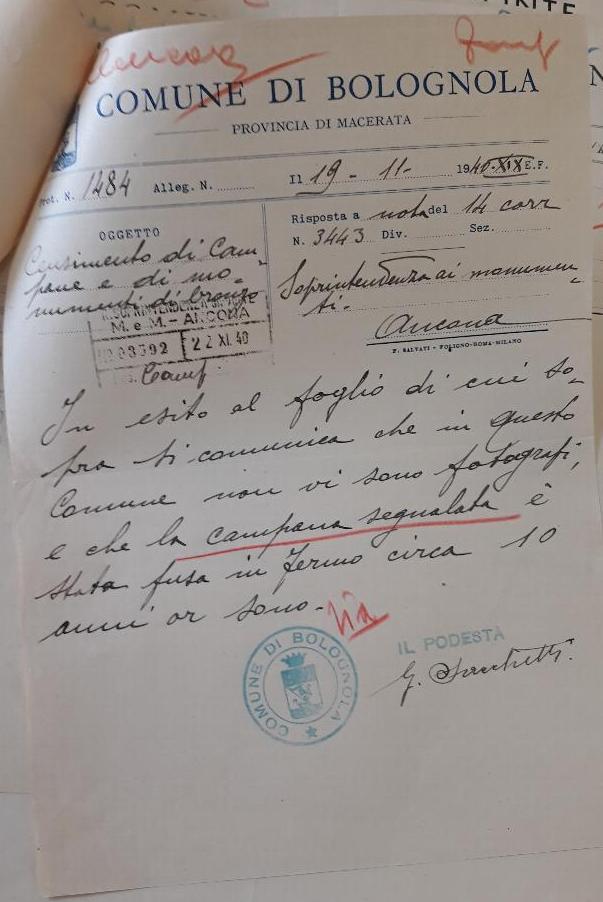 COMUNE DI BOLOGNOLA
PROVINCIA DI MACERATA
Prot. N. 1484 Alleg. N.
Il 19 - 11 - 1940-XIX E.F.
OGGETTO
Censimento di Cam-
pane e di mo-
numenti di bronzo
Risposta a nota del 14 corr
N. 3443 Div. Sez.
Soprintendenza ai monumen-
ti.
Ancona
F. SALVATI - FOLIGNO-ROMA-MILANO
M. e M. - ANCONA
22 XI. 40
Camp
In esito al foglio di cui so-
pra si comunica che in questo
Comune non vi sono fotografi,
e che la campana segnalata è
stata fusa in Fermo circa 10
anni or sono-
COMUNE DI BOLOGNOLA
IL PODESTÀ
G. Sacchetti